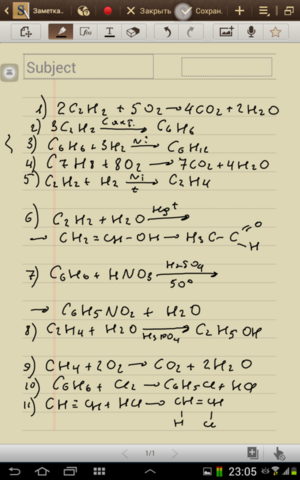 Заметка.
Закрыть
Сохран.
Subject
1) 2C2H2 + 5O2 → 4CO2 + 2H2O
2) 3C2H2 → C6H6
3) C6H6 + 3H2 →Ni C6H12
4) C7H8 + 8O2 → 7CO2 + 4H2O
5) C2H2 + H2 →Ni t C2H4
6) C2H2 + H2O →Hg2+
→ CH2=CH-OH → H3C-C =O H
7) C6H6 + HNO3 →H2SO4 50°
→ C6H5NO2 + H2O
8) C2H4 + H2O →H3PO4 C2H5OH
9) CH4 + 2O2 → CO2 + 2H2O
10) C6H6 + Cl2 → C6H5Cl + HCl
11) CH≡CH + HCl → CH=CH
H Cl
1/1
23:05